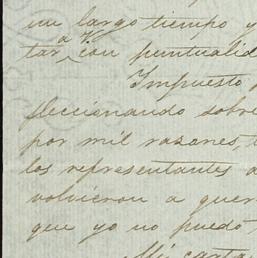 un largo tiempo y
a V.
tar con puntualid
Impuesto
fleccionando sobre
por mil razones,
los representantes
volvieron a quer
que yo no puedo
Mi carta